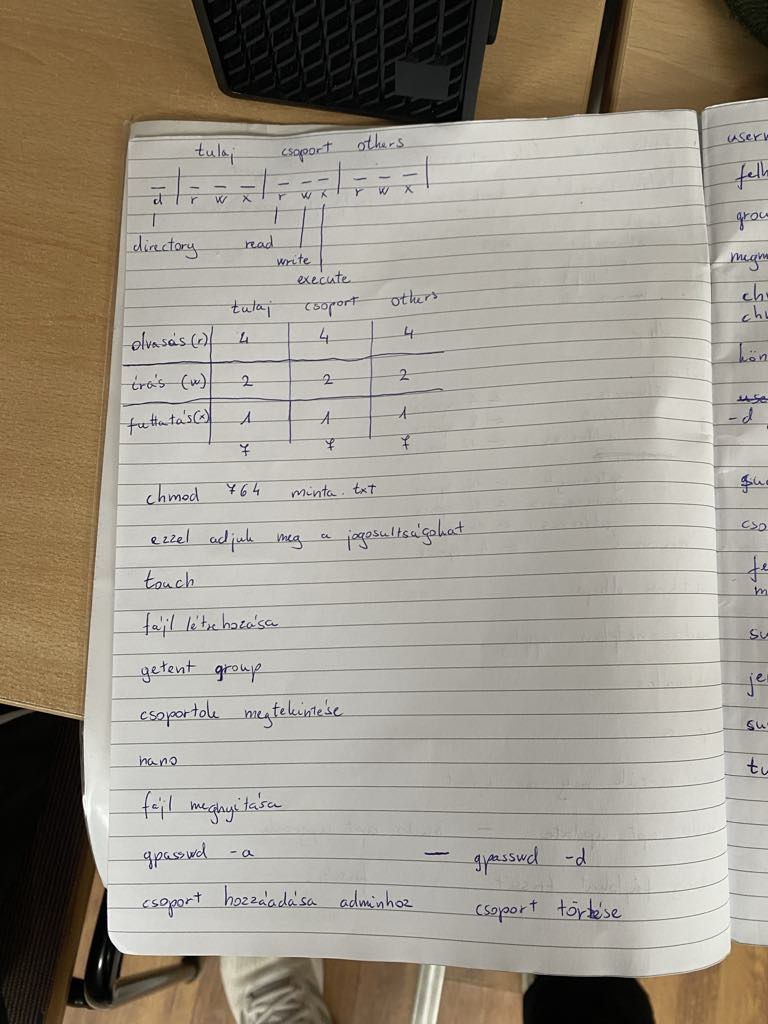 tulaj csoport others
_ | _ _ _ | _ _ _ | _ _ _ |
d r w x r w x r w x
directory read
write
execute
tulaj csoport others
olvasás (r) 4 4 4
írás (w) 2 2 2
futtatás (x) 1 1 1
7 7 7
chmod 764 minta.txt
ezzel adjuk meg a jogosultságokat
touch
fájl létrehozása
getent group
csoportok megtekintése
nano
fájl megnyitása
gpasswd -a — gpasswd -d
csoport hozzáadása adminhoz csoport törlése
-d